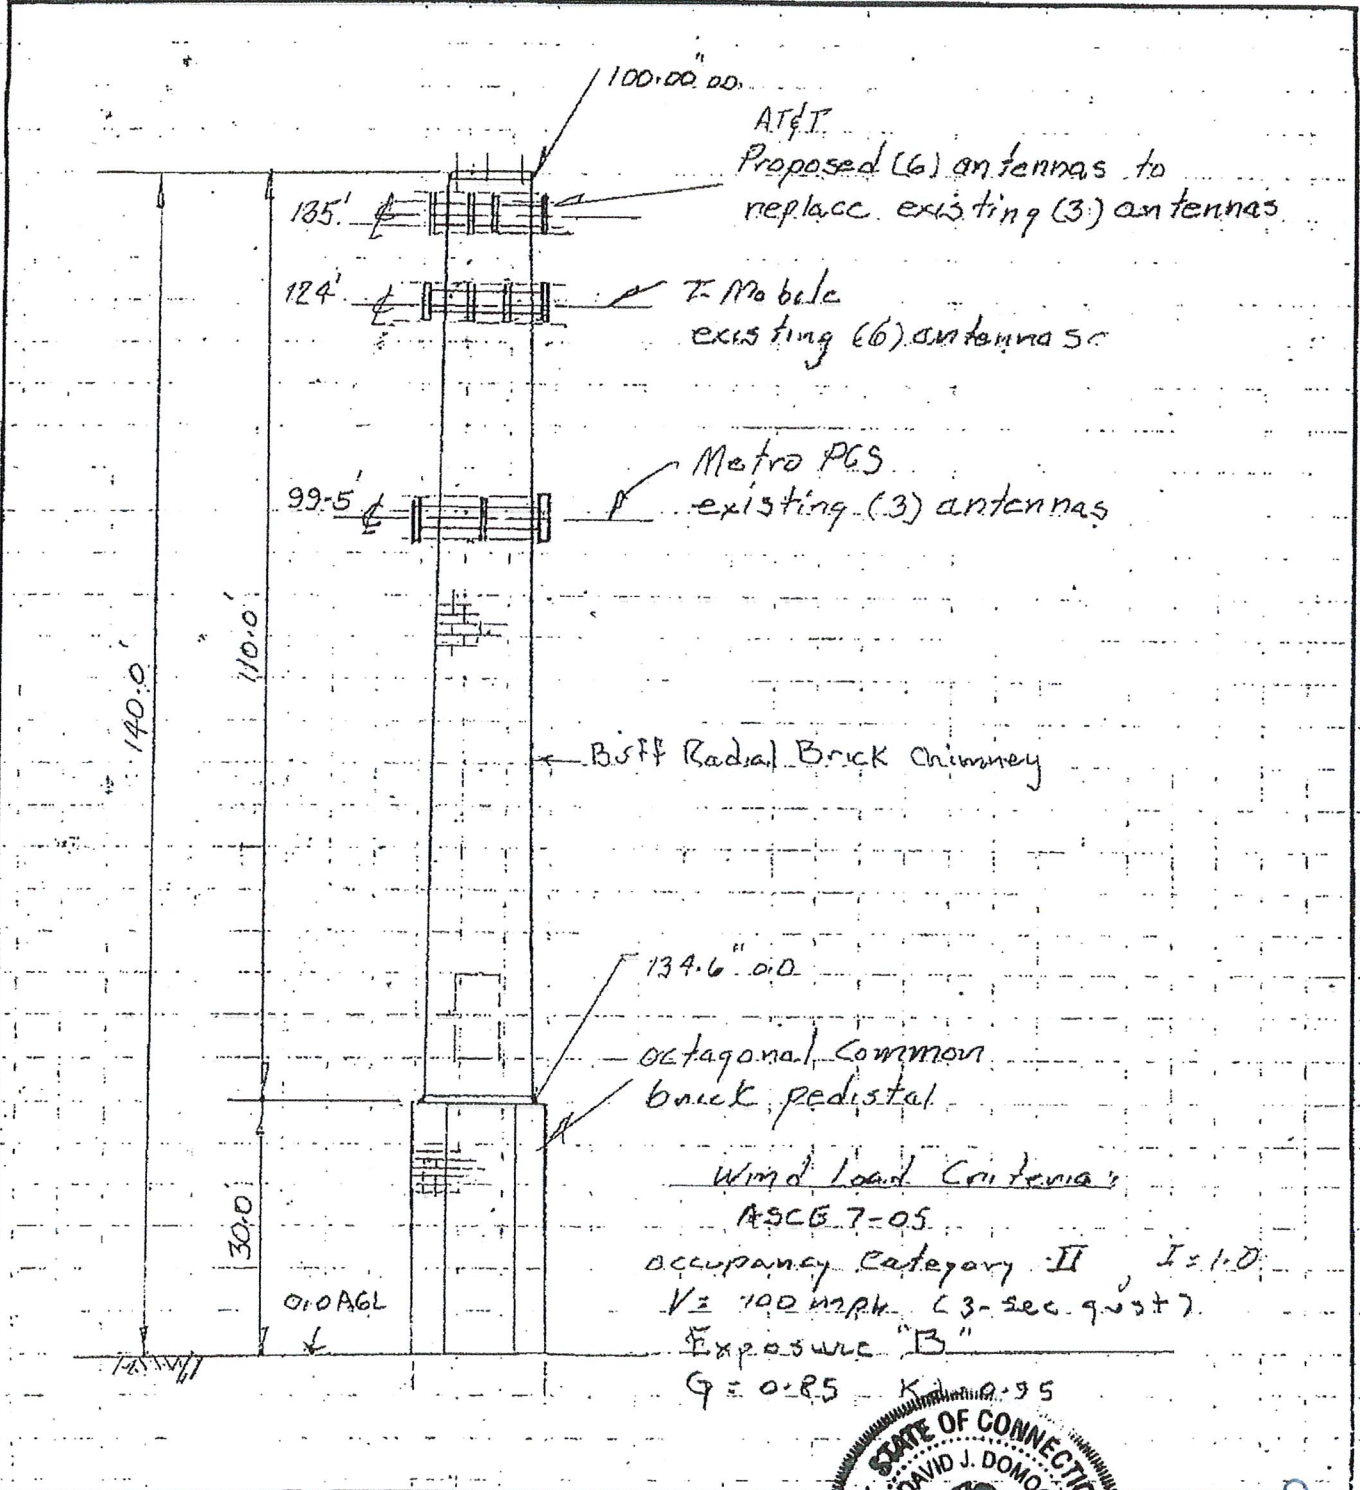 100.00" OD.
AT&T
Proposed (6) antennas to
replace existing (3) antennas
135' ℄
124' ℄
T-Mobile
existing (6) antennas
Metro PCS
existing (3) antennas
99.5' ℄
110.0'
140.0'
Buff Radial Brick Chimney
134.6" O.D
octagonal Common
brick pedistal
Wind Load Criteria:
ASCE 7-05
occupancy Category II, I = 1.0
V = 100 mph (3-sec. gust)
Exposure "B"
G = 0.85 Kd = 0.95
30.0'
0.0 AGL
STATE OF CONNECTIC
DAVID J. DOMO